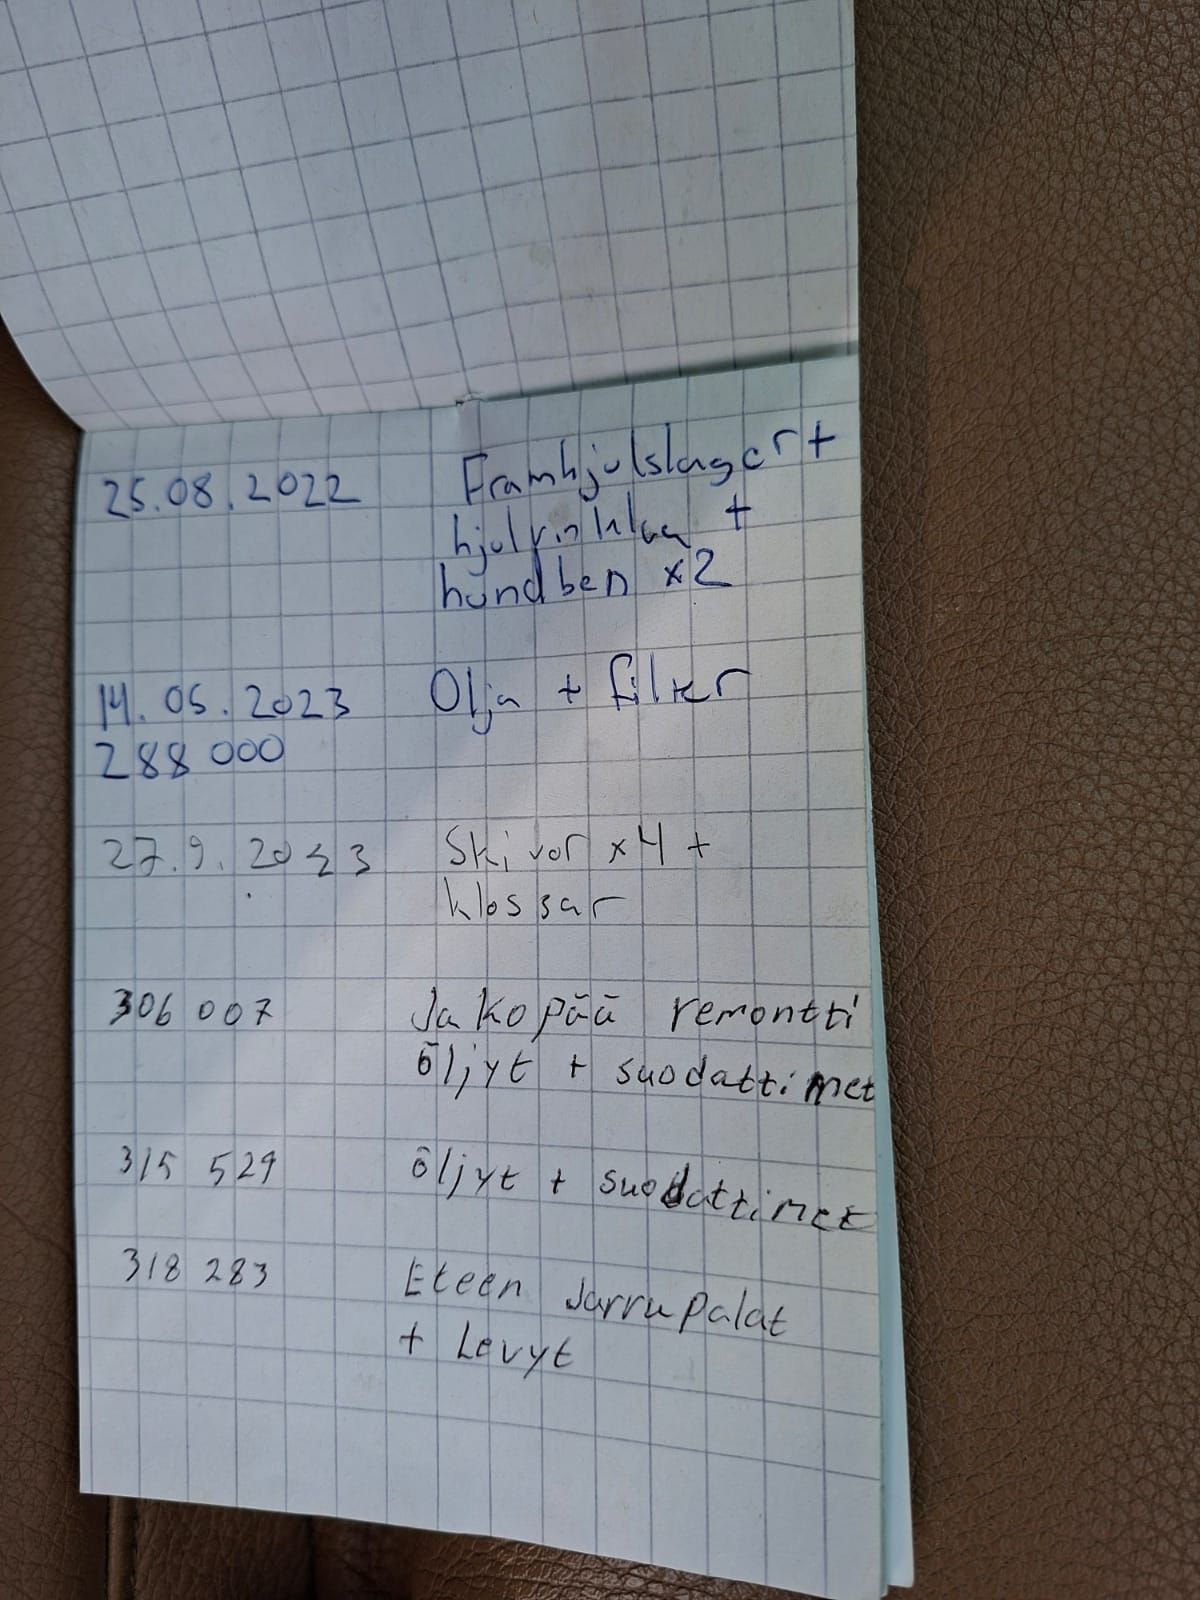 25.08.2022 Framhjulslager +
hjulvinklar +
hundben x2
14.05.2023 Olja + filter
288 000
27.9.2023 Skivor x4 +
klossar
306 007 Jakopää remontti
öljyt + suodattimet
315 529 öljyt + suodattimet
318 283 Eteen Jarrupalat
+ Levyt